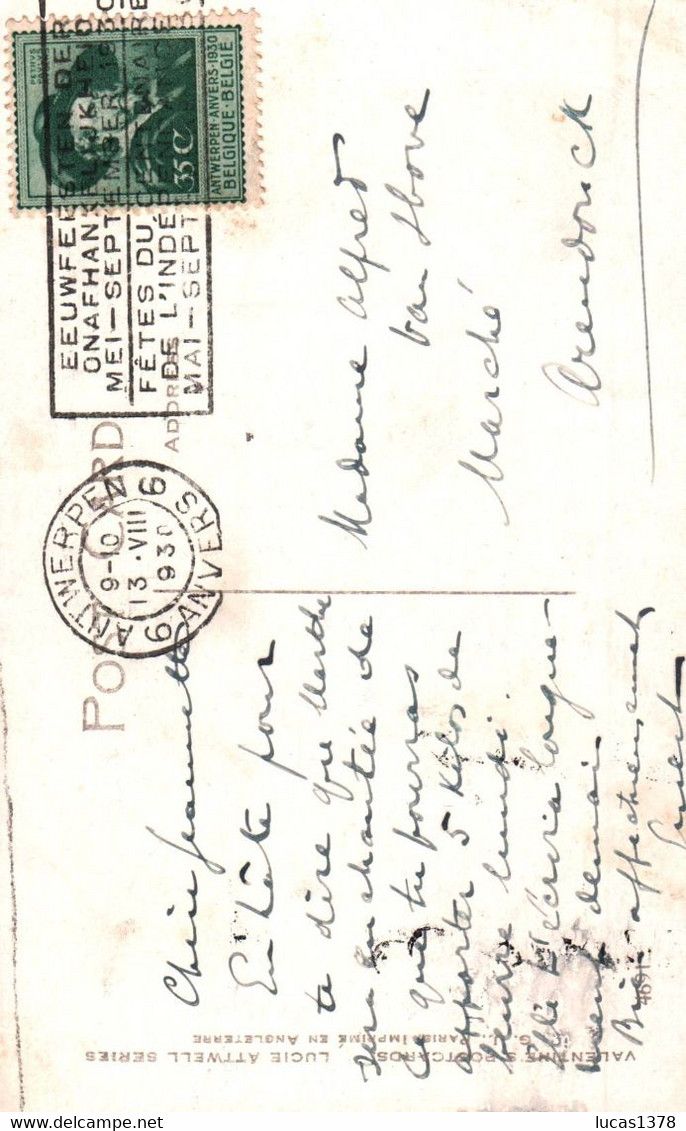 PETRVS PAVLVS
35 C
ANTWERPEN·ANVERS·1930
BELGIQUE·BELGIE
EEUWFEESTEN DER
ONAFHANKELIJKHEID
MEI–SEPTEMBER 1930
FÊTES DU CENTENAIRE
DE L'INDÉPENDANCE
MAI–SEPT
POST CARD
ADDRESS
ANTWERPEN 6
9-10
13·VIII
1930
6 ANVERS 6
Chère Jeannette
En hâte pour
te dire que Marthe
sera enchantée de
ce que tu pourras
apporter 5 Kilos de
beurre lundi.
Elle t'écrira longue-
ment demain
Bien affectueusement,
Madame Alfred
Van
Marché
Arendonck
VALENTINE'S POSTCARDS LUCIE ATTWELL SERIES
PARIS IMPRIMÉ EN ANGLETERRE
4691
Delcampe.net
lucas1378